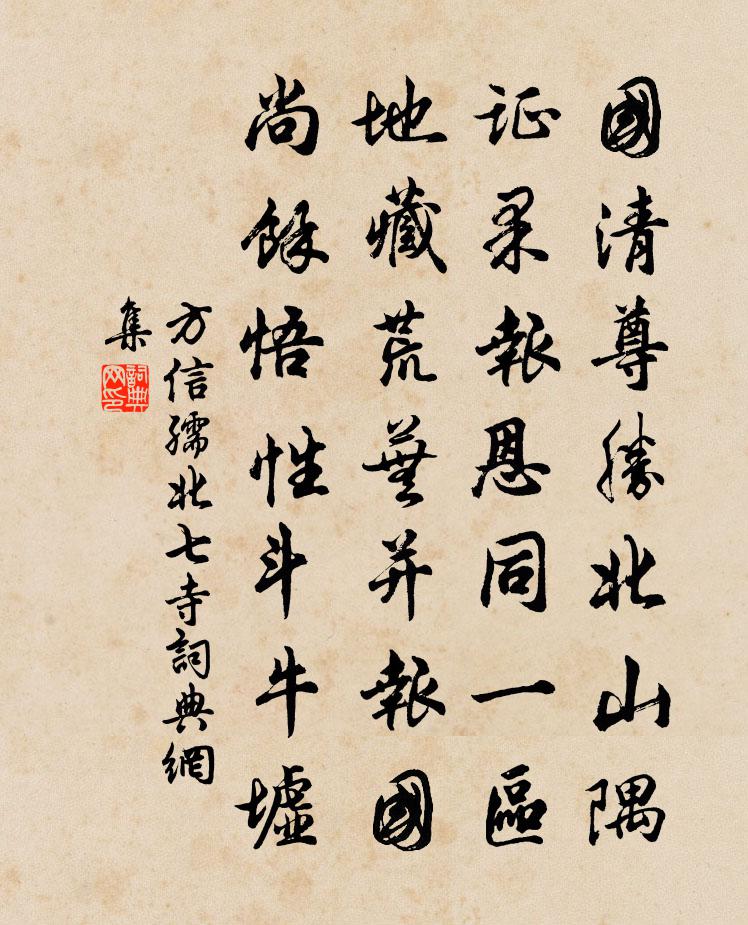 國清尊勝北山隅
証果報恩同一區
地藏荒蕪并報國
尚餘悟性斗牛墟
方信孺北七寺詞典網
集
詞典
网印